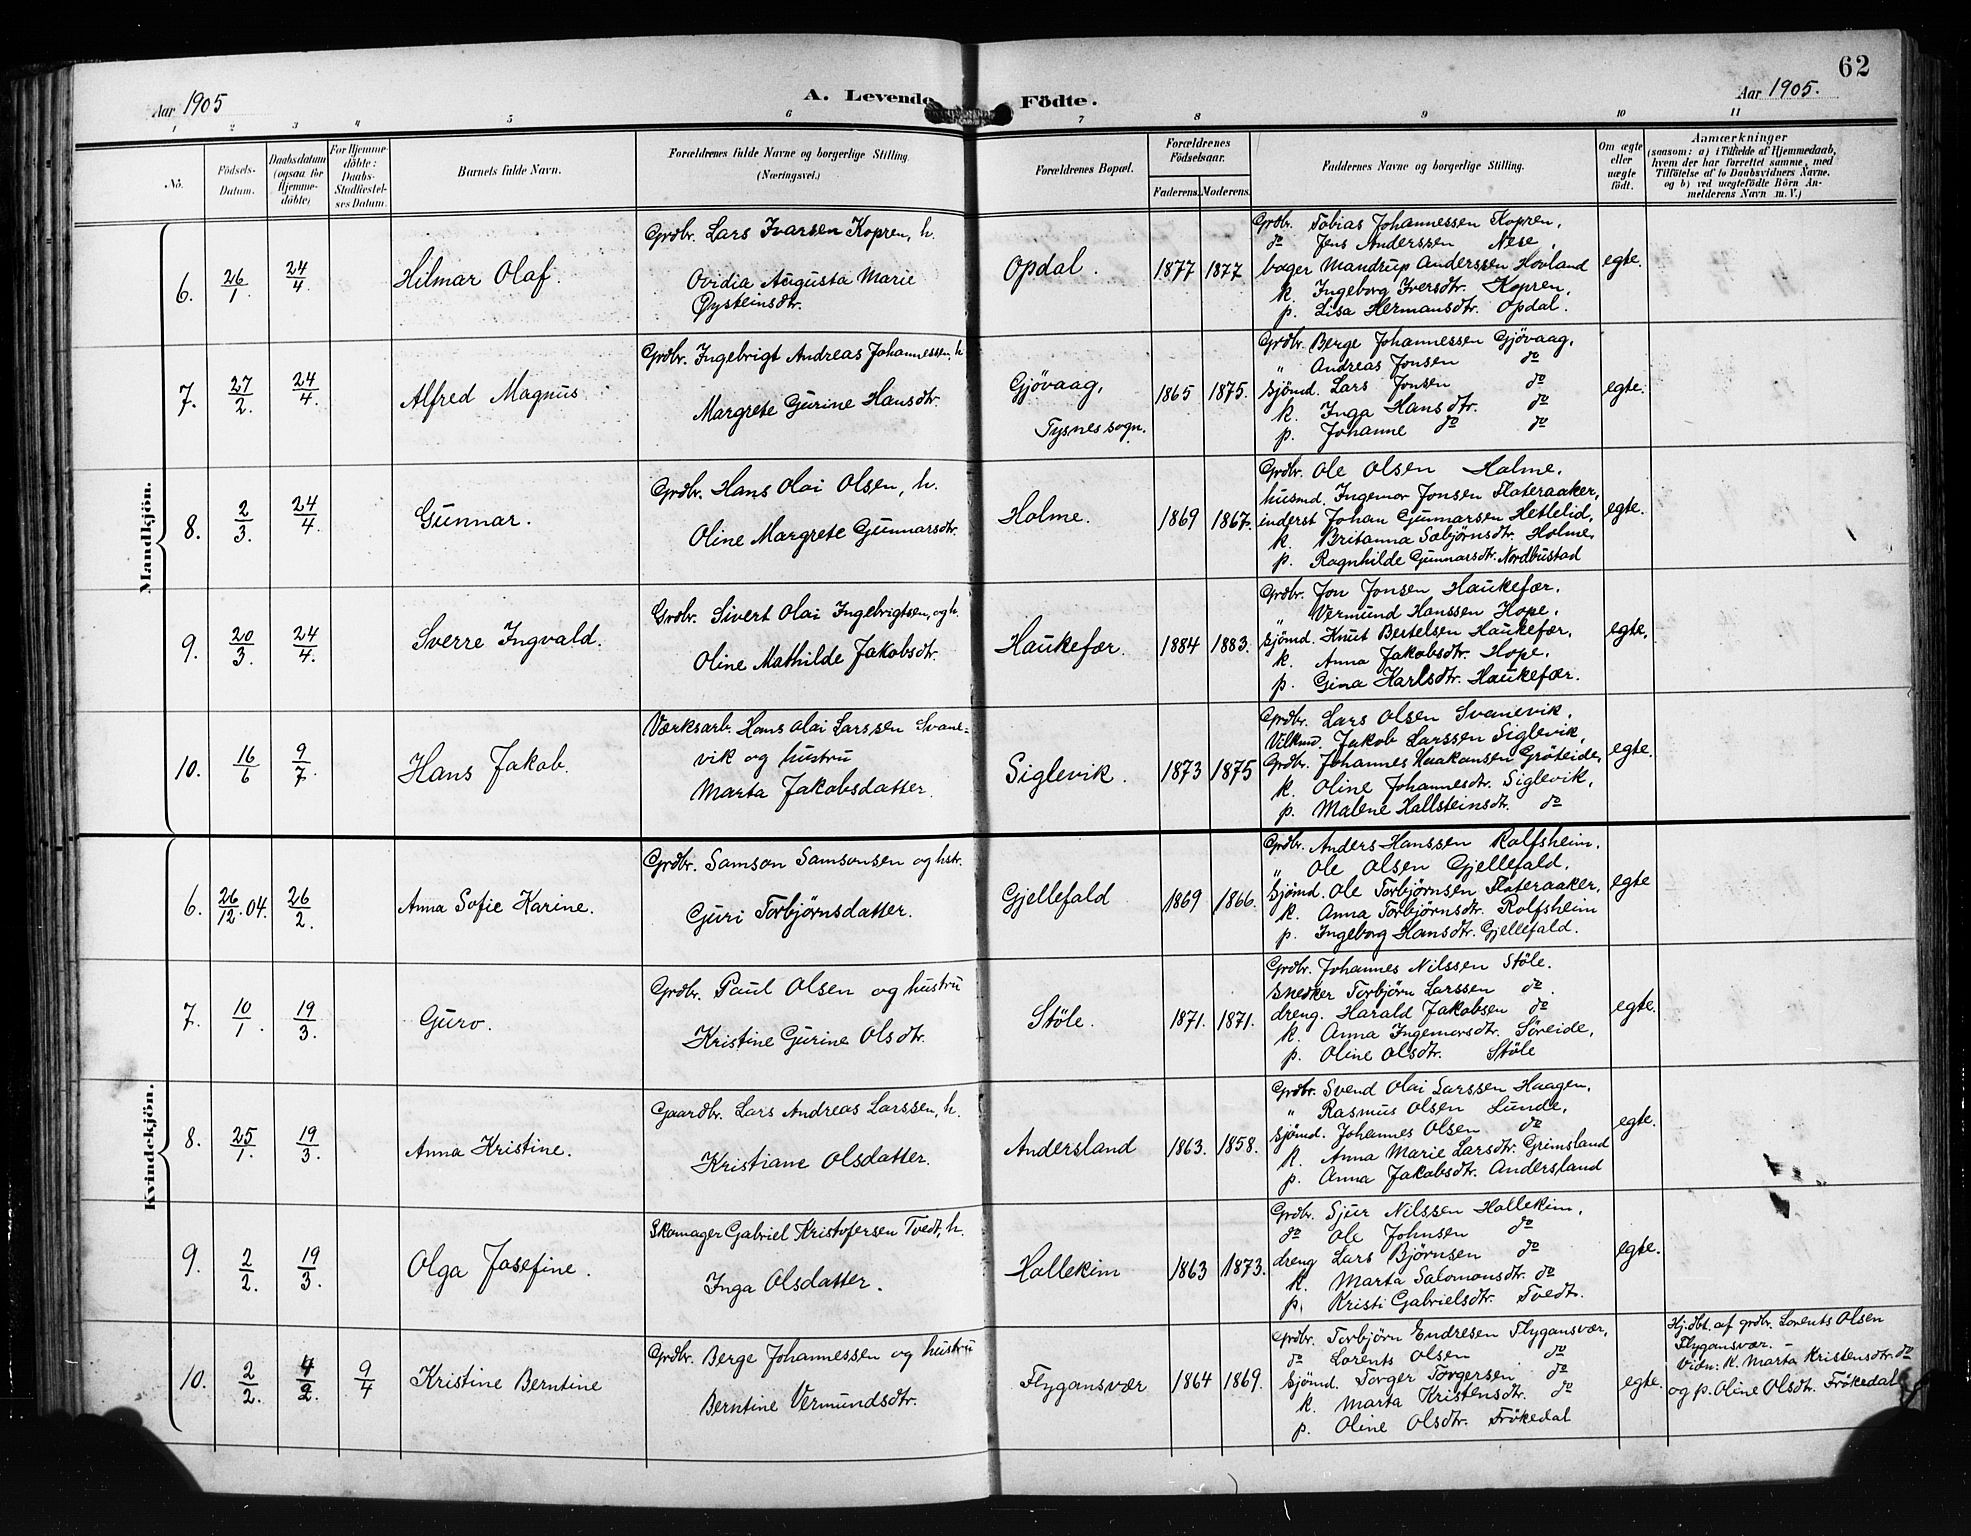 62
Aar 1905
A. Levende Födte.
Aar 1905.
1 2 3 4 5 6 7 8 9 10 11
No.
Födsels-Datum.
Daabsdatum (ogsaa for Hjemme-döbte)
For Hjemme-döbte: Daabs-Stadfæstel-ses Datum.
Barnets fulde Navn.
Forældrenes fulde Navne og borgerlige Stilling.
(Næringsvei.)
Forældrenes Bopæl.
Forældrenes Födselsaar.
Faderens. Moderens.
Faddernes Navne og borgerlige Stilling.
Om ægte eller uægte födt.
Anmærkninger
(saasom: a) i Tilfælde af Hjemmedaab,
hvem der har forrettet samme, med
Tilföielse af to Daabsvidners Navne.
og b) ved uægtefödte Börn An-
melderens Navn m. V.)
Mandkjön.
6. 26/1. 24/4 Hilmar Olaf.
Grdbr. Lars Ivarsen Kopren, h.
Ovidia Augusta Marie
Øysteinsdtr.
Opdal. 1877 1877
Grdbr. Tobias Johannessen Kopren,
do Jens Anderssen Nese,
bager Mandrup Anderssen Hovland
k. Ingeborg Iversdtr. Kopren,
p. Lisa Hermansdtr. Opdal.
egte.
7. 27/2. 24/4. Alfred Magnus
Grdbr. Ingebrigt Andreas Johannessen, h.
Margrete Gurine Hansdtr.
Gjövaag,
Tysnes sogn.
1865 1875.
Grdbr. Berge Johannessen Gjövaag,
" Andreas Jonsen do
Sjömd. Lars Jonsen do
k. Inga Hansdtr. do
p. Johanne do do
egte.
8. 2/3. 24/4 Gunnar.
Grdbr. Hans Olai Olsen, h.
Oline Margrete Gunnarsdtr.
Holme. 1869 1867.
Grdbr. Ole Olsen Holme,
husmd. Ingemor Jonsen Flateraaker,
inderst Johan Gunnarsen Hetlelid,
k. Britanna Sæbjørnsdtr. Holme,
p. Ragnhilde Gunnarsdtr. Nordbustad
egte.
9. 20/3. 24/4. Sverre Ingvald.
Grdbr. Sivert Olai Ingebrigtsen, og h.
Oline Mathilde Jakobsdtr.
Haukefær. 1884 1883.
Grdbr. Jon Jonsen Haukefær.
" Vermund Hanssen Hope,
Sjömd. Knut Bertelsen Haukefær,
k. Anna Jakobsdtr. Hope,
p. Gina Karlsdtr. Haukefær.
egte.
10. 16/6 9/7. Hans Jakob.
Værksarb. Hans Olai Larssen Svane-
vik og hustru
Marta Jakobsdatter.
Siglevik. 1873 1875
Grdbr. Lars Olsen Svanevik,
Jakob Larssen Siglevik,
Grdbr. Johannes Haakonsen Gröteide,
k. Oline Johannesdtr. Siglevik,
p. Malene Hallsteinsdtr. do
egte.
Kvindekjön.
6. 26/12. 04. 26/2. Anna Sofie Karine.
Grdbr. Samson Samsonsen og hstr.
Guri Torbjørnsdatter.
Gjellefald 1869 1866.
Grdbr. Anders Hanssen Rolfsheim,
" Ole Olsen Gjellefald,
Sjömd. Ole Torbjørnsen Flateraaker,
k. Anna Torbjørnsdtr. Rolfsheim
p. Ingeborg Hansdtr. Gjellefald.
egte
7. 10/1. 19/3. Guro.
Grdbr. Paul Olsen og hustru
Kristine Gurine Olsdtr.
Stöle. 1871. 1871.
Grdbr. Johannes Nilssen Stöle.
Snedker Torbjörn Larssen do.
dreng. Harald Jakobsen do
k. Anna Ingemorsdtr. Söreide,
p. Oline Olsdtr. Stöle
egte.
8. 25/1. 19/3. Anna Kristine.
Gaardbr. Lars Andreas Larssen, h.
Kristiane Olsdatter.
Andersland 1863. 1858.
Grdbr. Svend Olai Larssen Haagen,
" Rasmus Olsen Lunde,
Sjömd. Johannes Olsen do
k. Anna Marie Larsdtr. Grimsland
p. Anna Jakobsdtr. Andersland
egte.
9. 2/2. 19/3. Olga Josefine.
Skomager Gabriel Kristofersen Tvedt, h.
Inga Olsdatter.
Hollekim 1863 1873.
Grdbr. Sjur Nilssen Hollekim,
do Ole Johnsen do
dreng Lars Björnsen do
k. Marta Salomonsdtr. do
p. Kristi Gabrielsdtr. Tvedt.
egte.
10. 2/2. 4/2. 9/4 Kristine Berntine
Grdbr. Berge Johannessen og hustru
Berntine Vermundsdtr.
Flygansvær 1864 1869.
Grdbr. Torbjörn Endresen Flygansvær,
do Lorents Olsen do
Sjömd. Torger Torgersen do
k. Marta Kristensdtr. do
p. Oline Olsdtr. Frökedal
egte.
Hj.dbt. af grdbr. Lorents Olsen
Flygansvær. –
Vidn: k. Marta Kristensdtr. do
og p. Oline Olsdtr. Frökedal